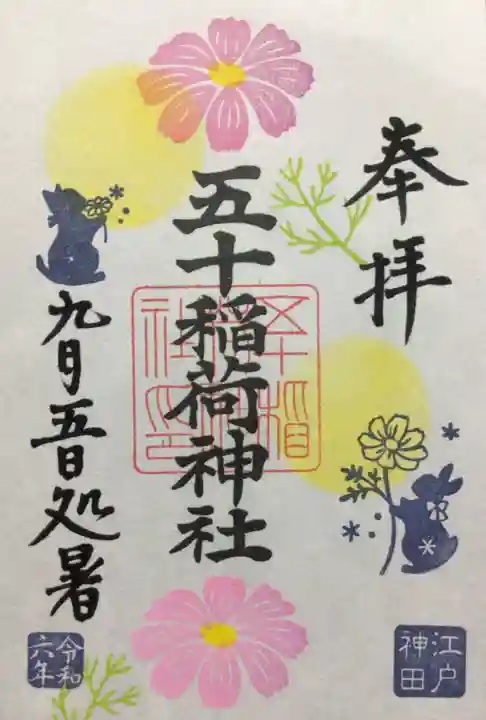 奉拝
五十稲荷神社
九月五日処暑
江戸
神田
令和
六年